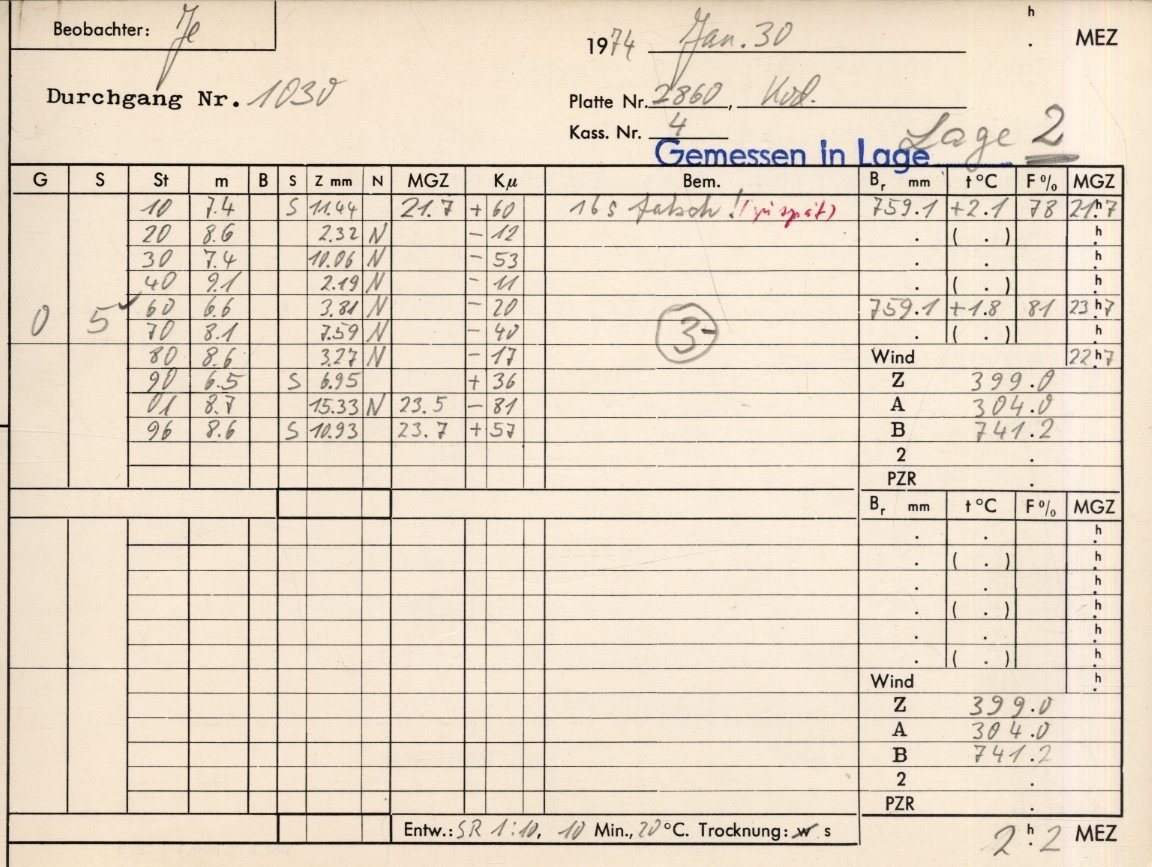 Beobachter: Je
1974 Jan. 30 h . MEZ
Durchgang Nr. 1030
Platte Nr. 2860, Kod.
Kass. Nr. 4
Gemessen in Lage Lage 2
G S St m B S Z mm N MGZ Kμ Bem. Br mm t °C F % MGZ
10 7.4 S 11.44 21.7 + 60 16 s falsch! (zu spät) 759.1 +2.1 78 21h.7
20 8.6 2.32 N - 12 . ( . ) h.
30 7.4 10.06 N - 53 . . h.
40 9.1 2.19 N - 11 . ( . ) h.
0 5 ✓ 60 6.6 3.81 N - 20 759.1 +1.8 81 23h.7
70 8.1 7.59 N - 40 3- . ( . ) h.
80 8.6 3.27 N - 17 Wind 22h.7
90 6.5 S 6.95 + 36 Z 399.0
01 8.7 15.33 N 23.5 - 81 A 304.0
96 8.6 S 10.93 23.7 + 57 B 741.2
2 .
PZR .
Br mm t °C F % MGZ
. . h.
. ( . ) h.
. . h.
. ( . ) h.
. . h.
. ( . ) h.
Wind h.
Z 399.0
A 304.0
B 741.2
2 .
PZR .
Entw.: SR 1:10, 10 Min., 20 °C. Trocknung: w s
2h.2 MEZ